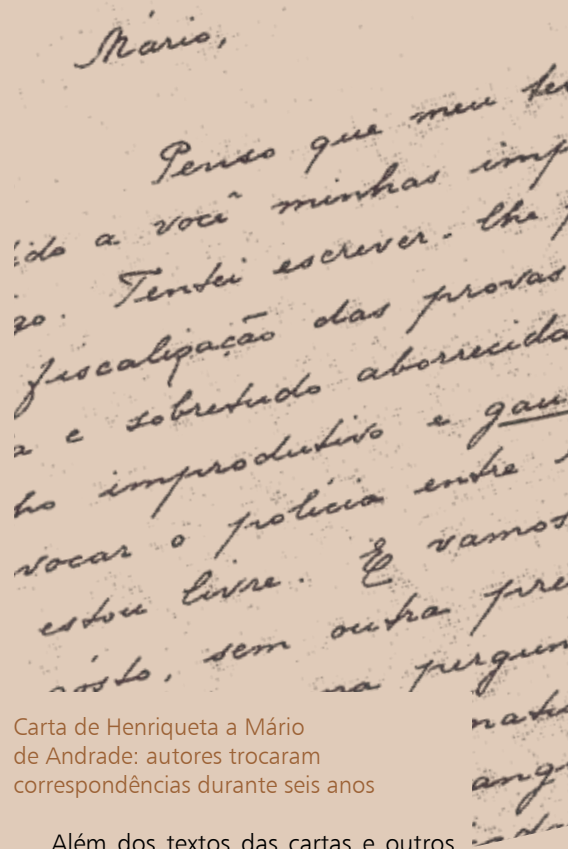 Mário,
Penso que meu
a você minhas imp
Tentei escrever-lhe
fiscalização das provas
a e sobretudo aborrecida
ho improdutivo e gau
vocar o polícia entre
estou livre. E vamos
sem outra pre
pergun
Carta de Henriqueta a Mário
de Andrade: autores trocaram
correspondências durante seis anos
Além dos textos das cartas e outros